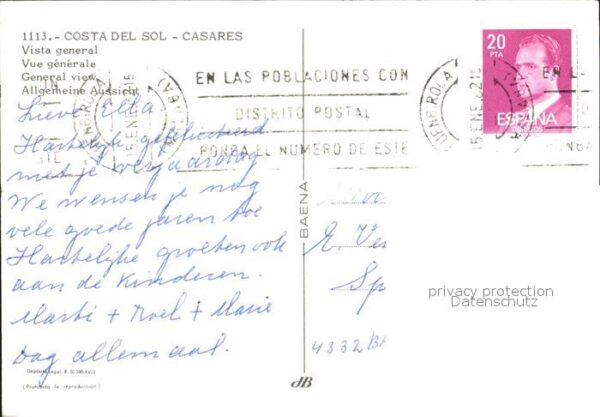 1113.- COSTA DEL SOL - CASARES
Vista general
Vue générale
General view
Allgemeine Aussicht
EN LAS POBLACIONES CON
DISTRITO POSTAL
PONGA EL NUMERO DE ESTE
15 ENE 82
20
PTA
ESPAÑA
Lieve Ella
Hartelijk gefeliciteerd
met je verjaardag
We wensen je nog
vele goede jaren toe
Hartelijke groeten ook
aan de Kinderen.
+ Roel + Marie
Dag allemaal.
BAENA
E. Ve
Sp
4332/BA
privacy protection
Datenschutz
Depósito Legal, B.
(Prohibida la reproducción)